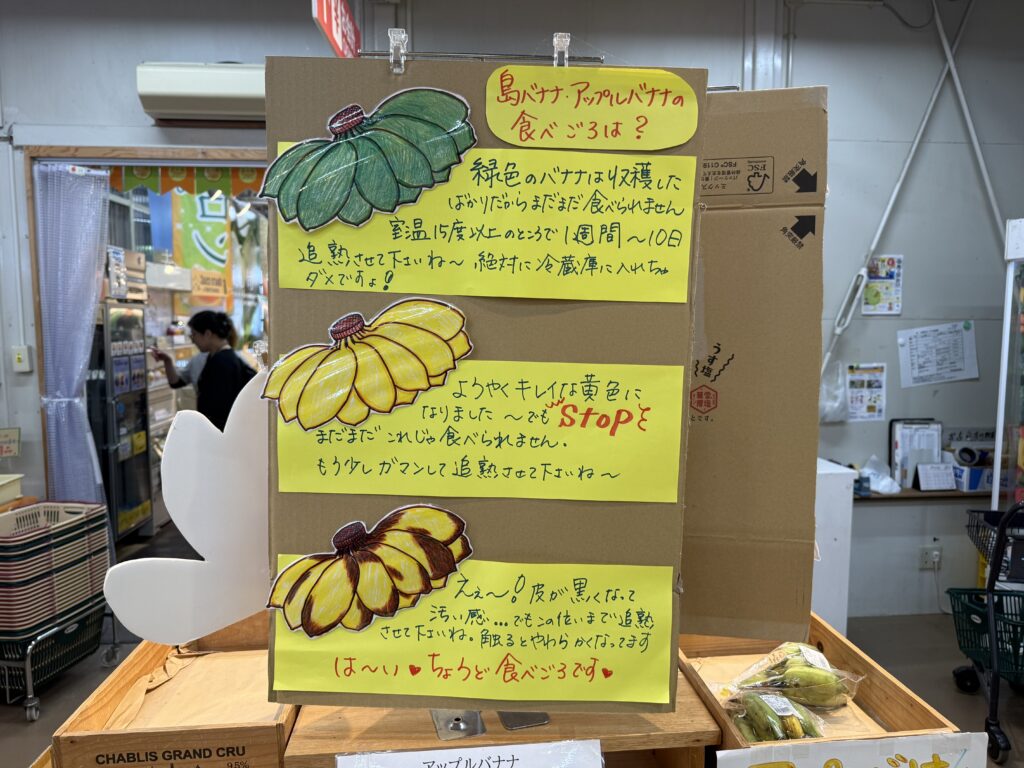 島バナナ・アップルバナナの
食べごろは?
緑色のバナナは収穫した
ばかりだからまだまだ食べられません
室温15度以上のところで1週間〜10日
追熟させて下さいね〜 絶対に冷蔵庫に入れちゃ
ダメですょ!
ようやくキレイな黄色に
なりました〜でもSTOPと
まだまだこれじゃ食べられません.
もう少しガマンして追熟させて下さいね〜
ええ〜!皮が黒くなって
汚い感...でもこの位いまで追熟
させて下さいね。触るとやわらかくなってます
は〜い♥ちょうど食べごろです♥
ミックス
FSC
FSC® C119
うす塩
CHABLIS GRAND CRU
アップルバナナ